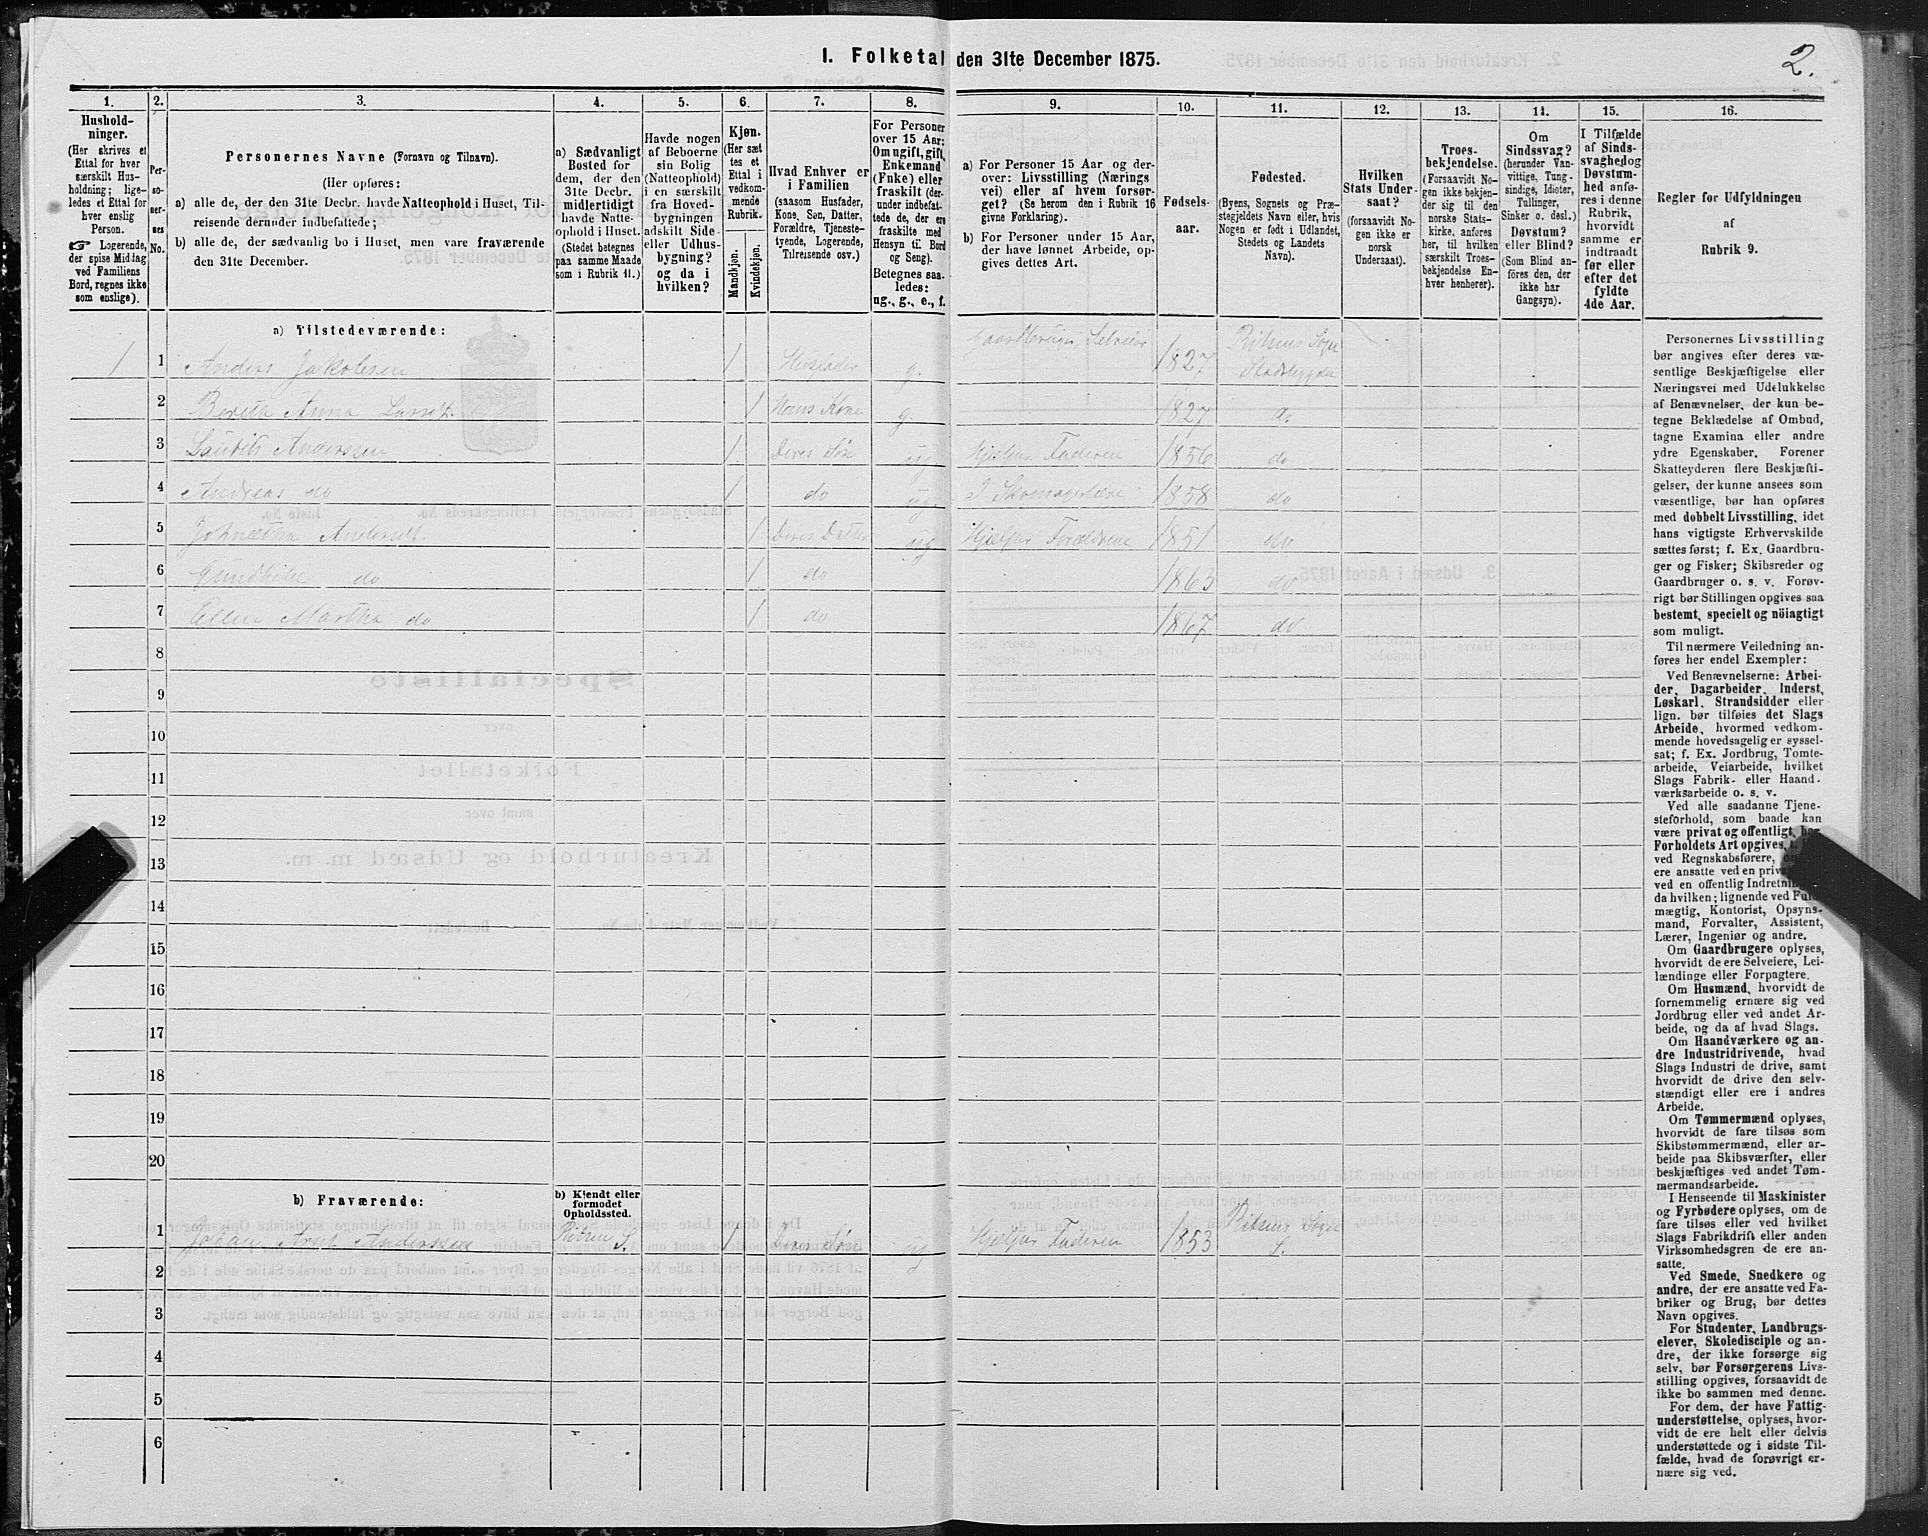 I. Folketal den 31te December 1875.
2.
1.
Hushold-
ninger.
(Her skrives et
Ettal for hver
særskilt Hus-
holdning; lige-
ledes et Ettal for
hver enslig
Person.
☞ Logerende,
der spise Middag
ved Familiens
Bord, regnes ikke
som enslige).
2.
Per-
so-
ner-
nes
No.
3.
Personernes Navne (Fornavn og Tilnavn).
(Her opføres:
a) alle de, der den 31te Decbr. havde Natteophold i Huset, Til-
reisende derunder indbefattede;
b) alle de, der sædvanlig bo i Huset, men vare fraværende
den 31te December.
4.
a) Sædvanligt
Bosted for
dem, der den
31te Decbr.
midlertidigt
havde Natte-
ophold i Huset.
(Stedet betegnes
paa samme Maade
som i Rubrik 11.)
5.
Havde nogen
af Beboerne
sin Bolig
(Natteophold)
i en særskilt
fra Hoved-
bygningen
adskilt Side-
eller Udhus-
bygning?
og da i
hvilken?
6.
Kjøn.
(Her sæt
tes et
Ettal i
vedkom-
mende
Rubrik.
Mandkjøn.
Kvindekjøn.
7.
Hvad Enhver er
i Familien
(saasom Husfader,
Kone, Søn, Datter,
Forældre, Tjeneste-
tyende, Logerende,
Tilreisende osv.)
8.
For Personer
over 15 Aar:
Om ugift, gift,
Enkemand
(Enke) eller
fraskilt (der-
under indbefat-
tede de, der ere
fraskilte med
Hensyn til Bord
og Seng).
Betegnes saa-
ledes:
ug., g., e., f.
9.
a) For Personer 15 Aar og der-
over: Livsstilling (Nærings
vei) eller af hvem forsør-
get? (Se herom den i Rubrik 16
givne Forklaring).
b) For Personer under 15 Aar,
der have lønnet Arbeide, op-
gives dettes Art.
10.
Fødsels-
aar.
11.
Fødested.
(Byens, Sognets og Præ-
stegjeldets Navn eller, hvis
Nogen er født i Udlandet,
Stedets og Landets
Navn).
12.
Hvilken
Stats Under-
saat?
(forsaavidt No-
gen ikke er
norsk
Undersaat).
13.
Troes-
bekjendelse.
(Forsaavidt No-
gen ikke bekjen-
der sig til den
norske Stats-
kirke, anføres
her, til hvilken
særskilt Troes-
bekjendelse En-
hver henhører).
14.
Om
Sindssvag?
(herunder Van-
vittige, Tung-
sindige, Idioter,
Tullinger,
Sinker o. desl.)
Døvstum?
eller Blind?
(Som Blind an-
føres den, der
ikke har
Gangsyn).
15.
I Tilfælde
af Sinds-
svaghed og
Døvstum-
hed anfø-
res i denne
Rubrik,
hvorvidt
samme er
indtraadt
før eller
efter det
fyldte
4de Aar.
16.
Regler for Udfyldningen
af
Rubrik 9.
a) Tilstedeværende:
1 1 Anders Jakobsen 1 Husfader g. Gaardbruger, Selveier 1827 Ritsus Sogn
Stadsbygden
2 Berith Anna Larsd. 1 Hans Kone g. 1827 do.
3 Laurits Anderssen 1 Deres Søn ug. Hjelper Faderen 1856 do
4 Andreas do 1 do ug. I Skomagerlære 1858 do
5 Andersdt. 1 Deres Datter ug Hjelper Forældrene 1851 do
6 do 1 do 1863 do
7 Ellen Martha do 1 do 1867 do
8
9
10
11
12
13
14
15
16
17
18
19
20
b) Fraværende:
b) Kjendt eller
formodet
Opholdssted.
1 Johan Anderssen 1 Deres Søn ug Hjelper Faderen 1853 Ritsus Sogn
S.
2
3
4
5
6
Personernes Livsstilling
bør angives efter deres væ-
sentlige Beskjæftigelse eller
Næringsvei med Udelukkelse
af Benævnelser, der kun be-
tegne Beklædelse af Ombud,
tagne Examina eller andre
ydre Egenskaber. Forener
Skatteyderen flere Beskjæfti-
gelser, der kunne ansees som
væsentlige, bør han opføres
med dobbelt Livsstilling, idet
hans vigtigste Erhvervskilde
sættes først; f. Ex. Gaardbru-
ger og Fisker; Skibsreder og
Gaardbruger o. s. v. Forøv-
rigt bør Stillingen opgives saa
bestemt, specielt og nöiagtigt
som muligt.
Til nærmere Veiledning an-
føres her endel Exempler:
Ved Benævnelserne: Arbei-
der, Dagarbeider, Inderst,
Løskarl, Strandsidder eller
lign. bør tilføies det Slags
Arbeide, hvormed vedkom-
mende hovedsagelig er syssel-
sat; f. Ex. Jordbrug, Tomte-
arbeide, Veiarbeide, hvilket
Slags Fabrik- eller Haand-
værksarbeide o. s. v.
Ved alle saadanne Tjene-
steforhold, som baade kan
være privat og offentligt, bør
Forholdets Art opgives,
ved Regnskabsførere,
ere ansatte ved en
ved en offentlig
da hvilken; lignende ved
mægtig, Kontorist, Opsyns-
mand, Forvalter, Assistent,
Lærer, Ingeniør og andre.
Om Gaardbrugere oplyses,
hvorvidt de ere Selveiere, Lei-
lændinge eller Forpagtere.
Om Husmænd, hvorvidt de
fornemmelig ernære sig ved
Jordbrug eller ved andet Ar-
beide, og da af hvad Slags.
Om Haandværkere og an-
dre Industridrivende, hvad
Slags Industri de drive, samt
hvorvidt de drive den selv-
stændigt eller ere i andres
Arbeide.
Om Tømmermænd oplyses,
hvorvidt de fare tilsøs som
Skibstømmermænd, eller ar-
beide paa Skibsværfter, eller
beskjæftiges ved andet Tøm-
mermandsarbeide.
I Henseende til Maskinister
og Fyrbødere oplyses, om de
fare tilsøs eller ved hvilket
Slags Fabrikdrift eller anden
Virksomhedsgren de ere an-
satte.
Ved Smede, Snedkere og
andre, der ere ansatte ved Fa-
briker og Brug, bør dettes
Navn opgives.
For Studenter, Landbrugs-
elever, Skoledisciple og an-
dre, der ikke forsørge sig
selv, bør Forsørgerens Livs-
stilling opgives, forsaavidt de
ikke bo sammen med denne.
For dem, der have Fattig-
understøttelse, oplyses, hvor-
vidt de ere helt eller delvis
understøttede og i sidste Til-
fælde, hvad de forøvrigt er-
nære sig ved.